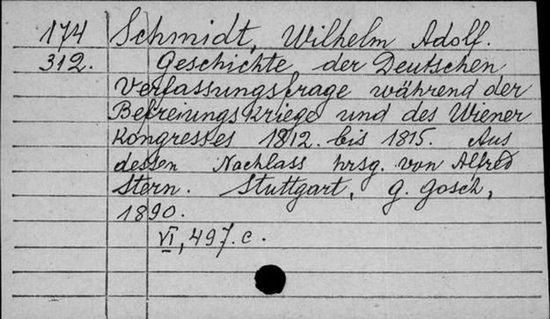 174 Schmidt, Wilhelm Adolf.
312. Geschichte der Deutschen
Verfassungsfrage während der
Befreiungskriege und des Wiener
Kongresses 1812. bis 1815. Aus
dessen Nachlass hrsg. von Alfred
Stern. Stuttgart, g. Gosch,
1890.
VI, 497. c.